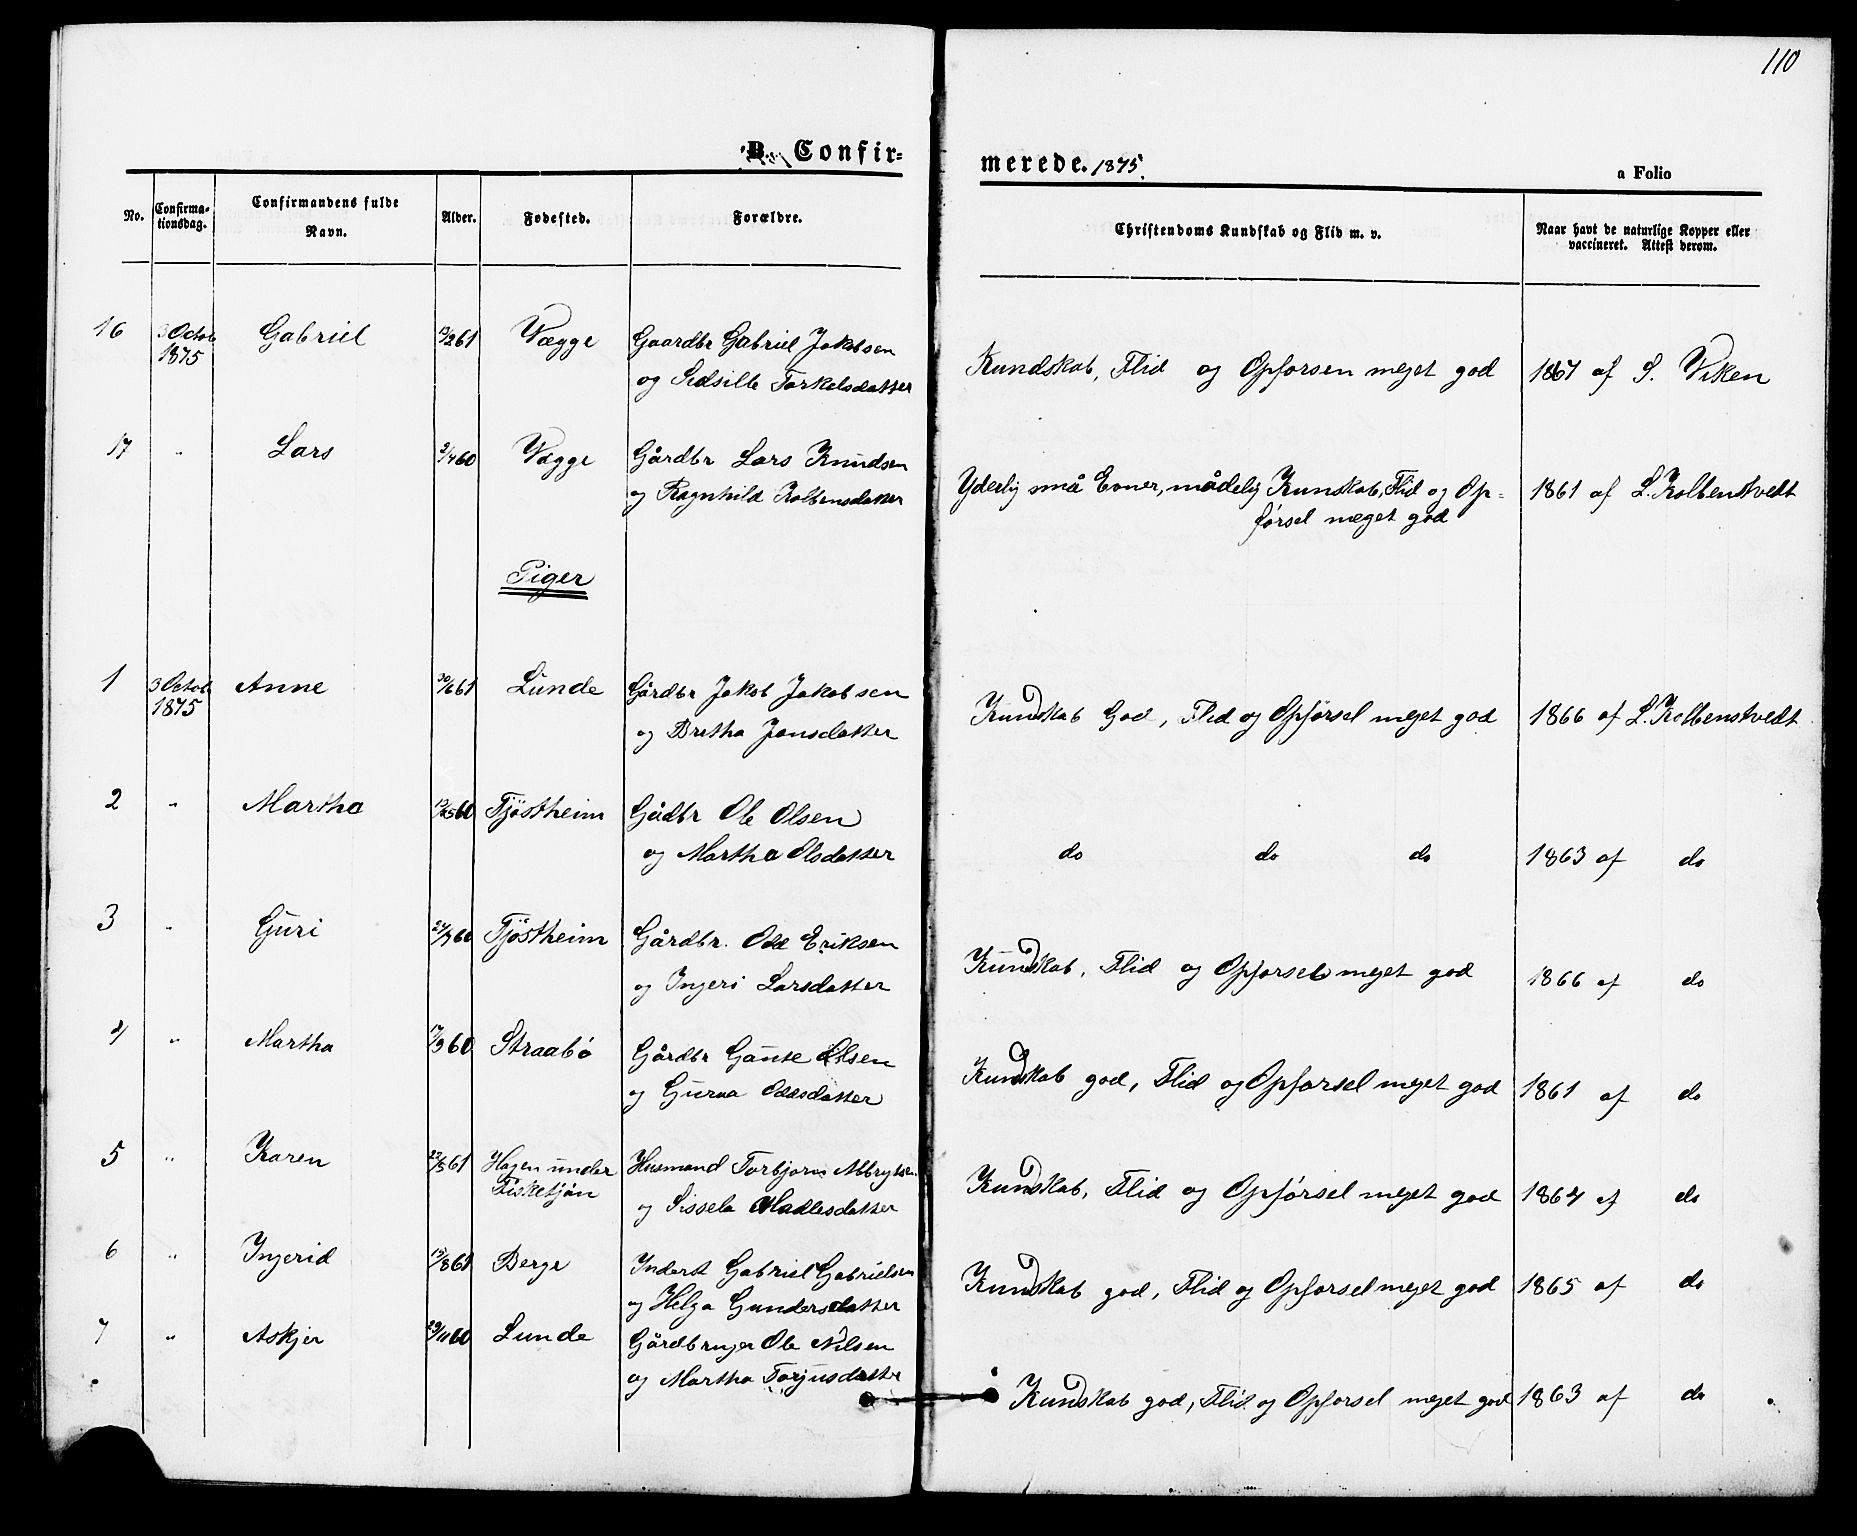 110
B. Confir=
merede. 1875.
a Folio
No.
Confirma=
tionsdag.
Confirmandens fulde
Navn.
Alder.
Fødested.
Forældre.
Christendoms Kundskab og Flid m. v.
Naar havt de naturlige Kopper eller
vaccineret. Attest derom.
16 3 Octob Gabriel 61 Vægge Gaardbr Gabriel Jakobsen
1875 og Sidsille Torkelsdatter
Kundskab, Flid og Opforsen meget god 1867 af S. Viken
17 " Lars 2/4 60 Vægge Gårdbr Lars Knudsen
og Ragnhild Kolbensdatter
Yderlig små Evner, mådelig Kunskab, Flid og Op=
førsel meget god
1861 af L. Kolbenstvedt
Piger
1 3 Octob Anne 30/6 61 Lunde Gårdbr Jakob Jakobsen
1875 og Bretha Jonsdatter
Kundskab God, Flid og Opførsel meget god 1866 af L. Kolbenstvedt
2 " Martha 60 Tjøstheim Gådbr Ole Olsen
og Martha Olsdatter
do do do 1863 af do
3 " Guri 60 Tjøstheim Gårdbr. Odd Eriksen
og Ingeri Larsdatter
Kundskab, Flid og Opforsel meget god 1866 af do
4 " Martha 17/9 60 Straabø Gårdbr Gunte Olsen
og Guroa Oddsdatter
Kundskab god, Flid og Opforsel meget god 1861 af do
5 " Karen 22/5 61 Hagen under Husmand Torbjorn
Fisketjøn og Sissela Madlesdatter
Kundskab, Flid og Opførsel meget god 1864 af do
6 " Ingerid 61 Berge Inderst Gabriel Gabrielsen
og Helga Gundersdatter
Kundskab god, Flid og Opforsel meget god 1865 af do
7 " Askjer 29/11 60 Lunde Gårdbruger Ole Nilsen
og Martha Torjusdatter
Kundskab god, Flid og Opforsel meget god 1863 af do